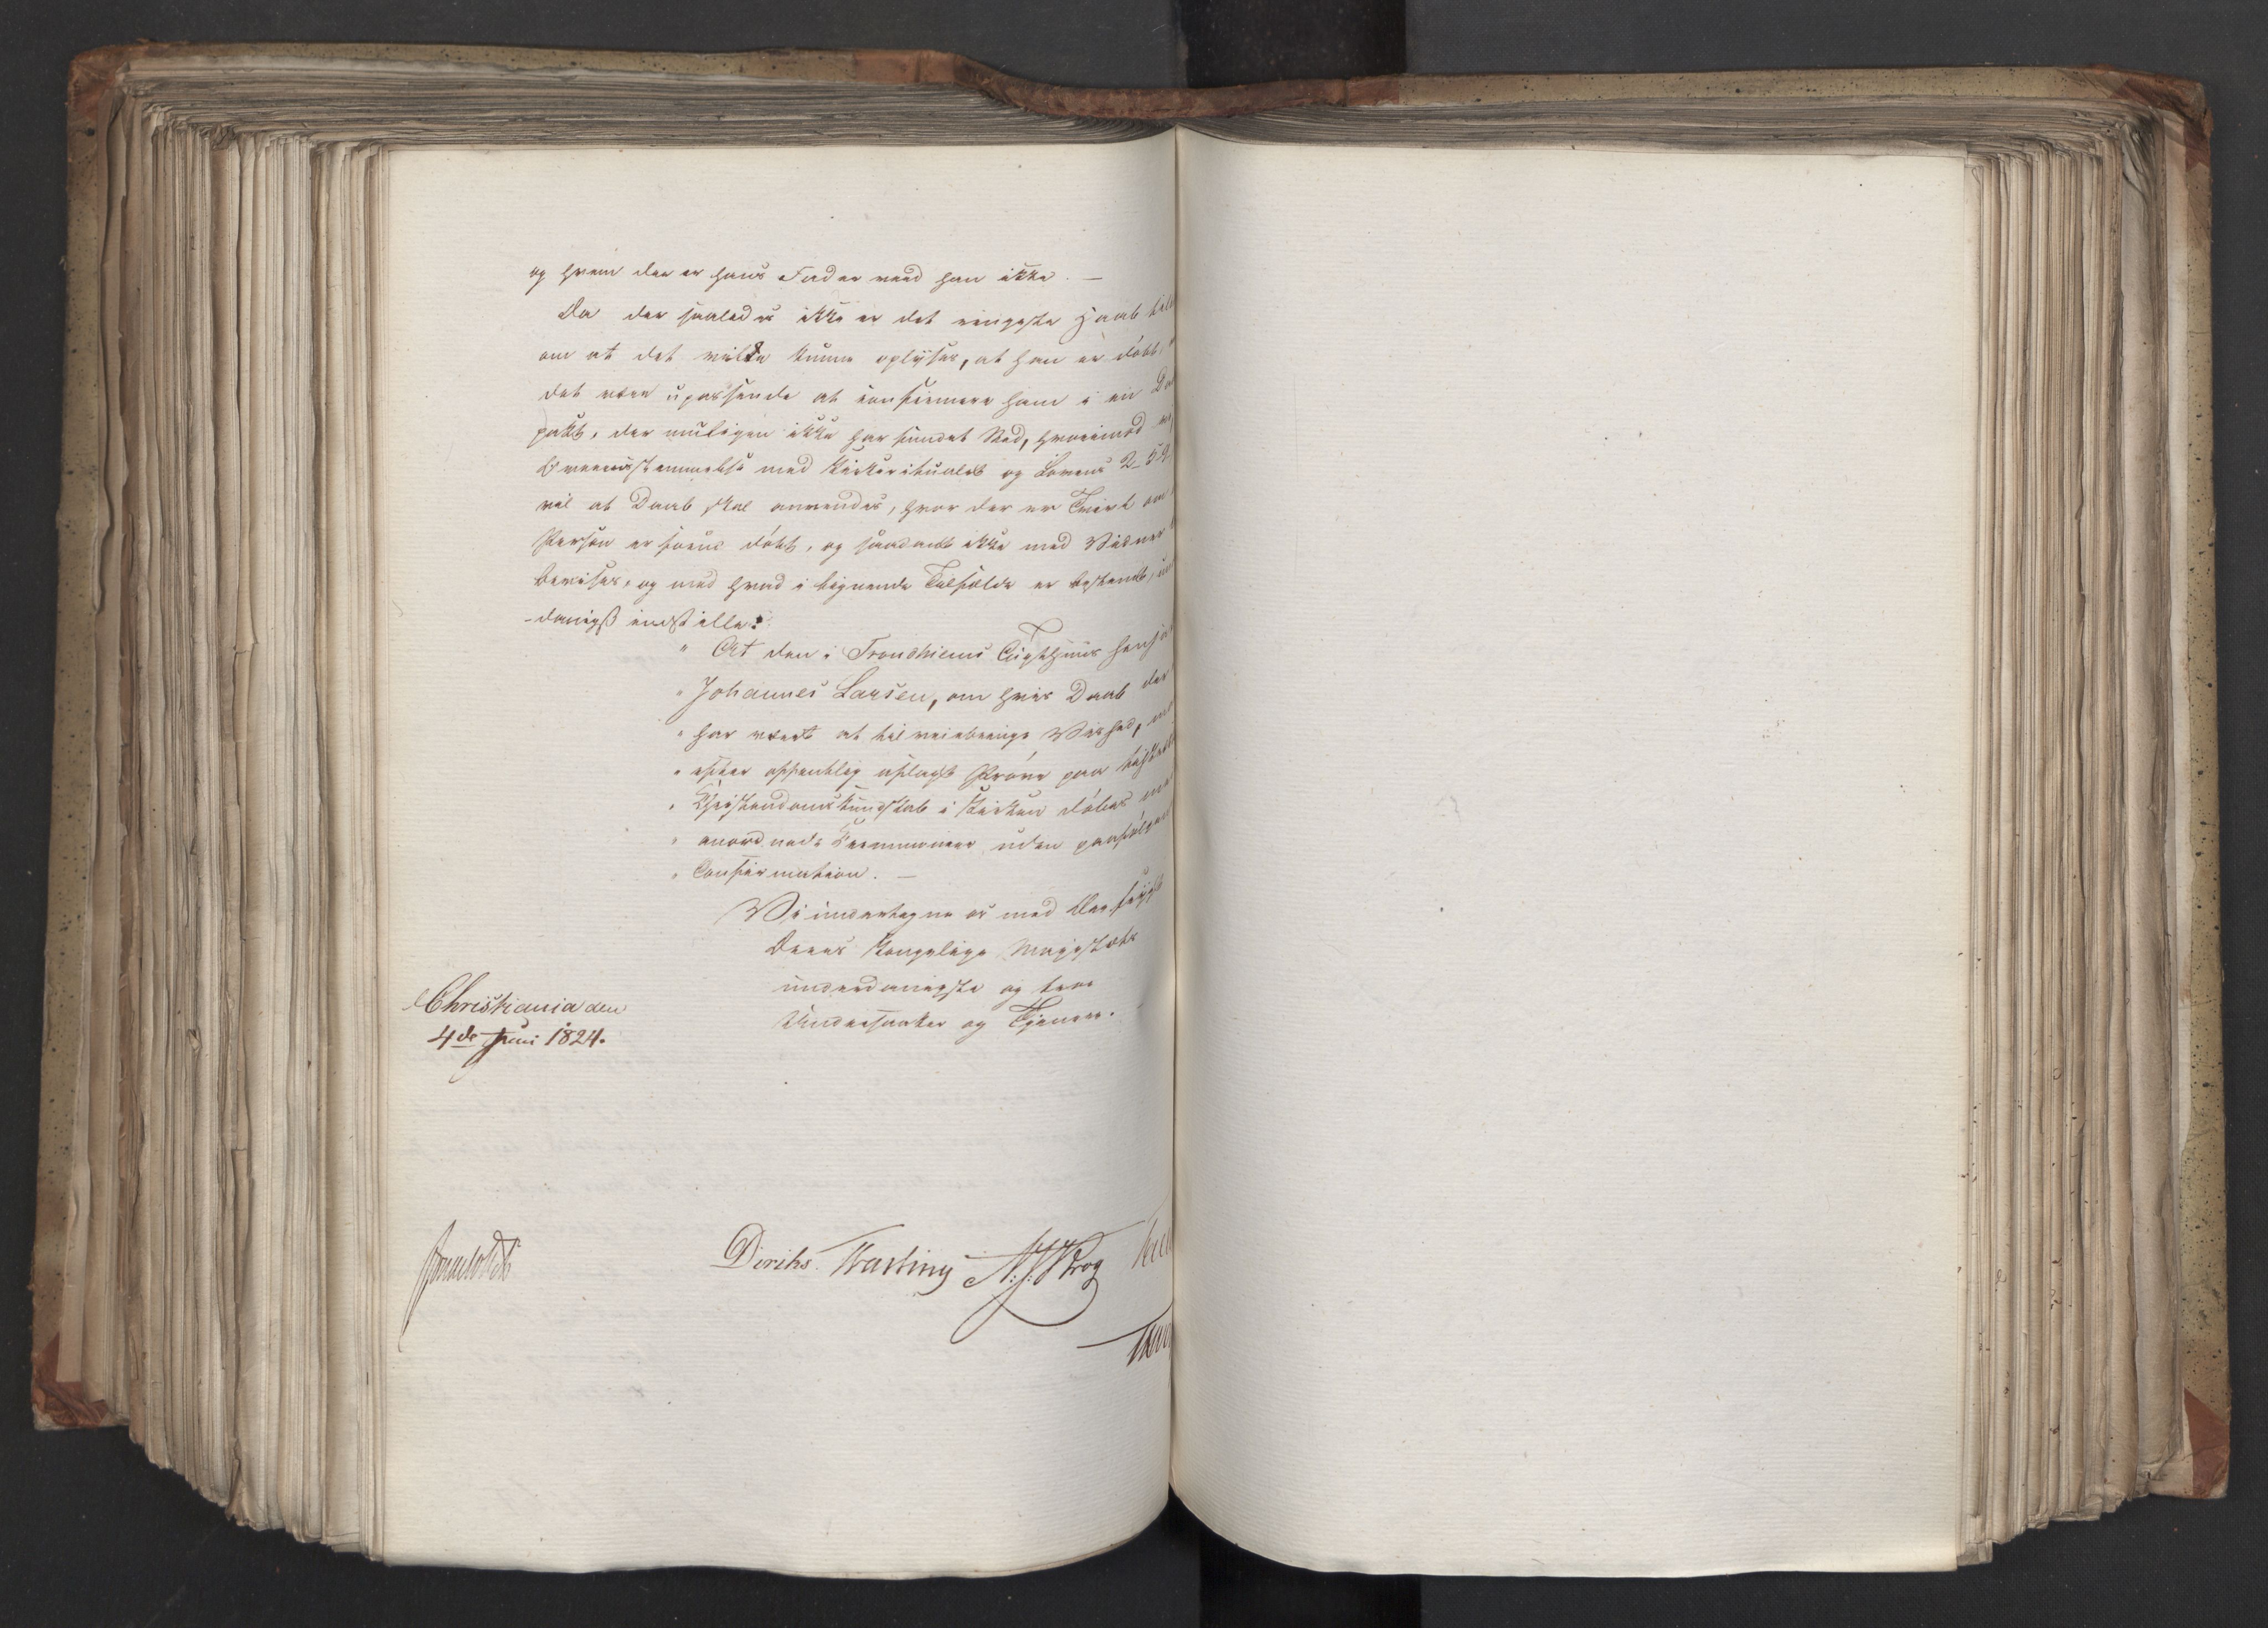 og hvem der er hans Fader veed han ikke. —
Da der saaledes ikke er det ringeste Haab til
om at det vilde kunne oplyses, at han er döbt,
det være upassende at confirmere ham i en Daa
pakt, der muligen ikke har fundet Sted, hvorimod
Overeensstemmelse med Kirkeritualet og Lovens 2-5-
vil at Daab skal anvendes, hvor der er Tvivl om
Person er forud döbt, og saadant ikke med Vidner
bevises, og med hvad i lignende Tilfælde er bestemt,
-danigst indstille:
" At den i Trondhiems Tugthuus
" Johannes Larsen, om hvis Daab der
" har været at tilveiebringe Vished,
" efter offentlig aflagt Pröve paa
" Christendomskundskab i Kirken döbes
" anordnede Ceremonier uden paafölgen
" Confirmation. —
Vi undertegne os med dybeste
Deres Kongelige Majestæts
underdanigste og troe
Undersaatter og Tjenere.
Christiania den
4de Juni 1824.
Diriks. N: J: Krog